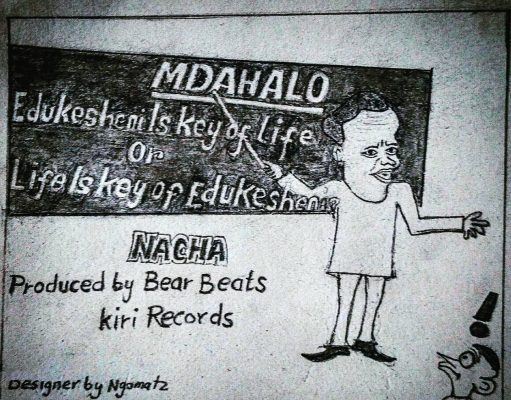 MDAHALO
Edukesheni Is key of Life
Or
Life Is key of Edukesheni
NACHA
Produced by Bear Beats
kiri Records
Designer by Ngomatz